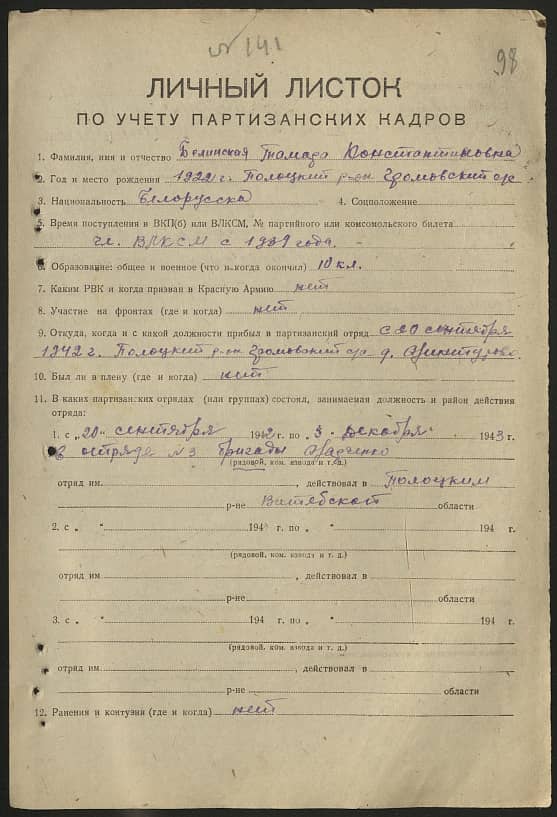 № 141
98
ЛИЧНЫЙ ЛИСТОК
ПО УЧЕТУ ПАРТИЗАНСКИХ КАДРОВ
1. Фамилия, имя и отчество Белинская Тамара Константиновна
2. Год и место рождения 1922 г. Полоцкий р-он Здомовский с/с
3. Национальность Белорусска 4. Соцположение
5. Время поступления в ВКП(б) или ВЛКСМ, № партийного или комсомольского билета
чл. ВЛКСМ с 1939 года.
6. Образование: общее и военное (что и когда окончил) 10 кл.
7. Каким РВК и когда призван в Красную Армию нет
8. Участие на фронтах (где и когда) нет
9. Откуда, когда и с какой должности прибыл в партизанский отряд с 20 сентября
1942 г. Полоцкий р-он Здомовский с/с д.
10. Был ли в плену (где и когда) нет
11. В каких партизанских отрядах (или группах) состоял, занимаемая должность и район действия
отряда:
1. с „20" сентября 1942 г. по „3" Декабря 1943 г.
В отряде №3 бригады
(рядовой, ком. взвода и т.д.)
отряд им. , действовал в Полоцким
р-не Витебской области
2. с „ " 194 г. по „ " 194 г.
(рядовой, ком. взвода и т. д.)
отряд им. , действовал в
р-не области
3. с „ " 194 г. по „ " 194 г.
(рядовой, ком. взвода и т. д.)
отряд им. , действовал в
р-не области
12. Ранения и контузии (где и когда) нет